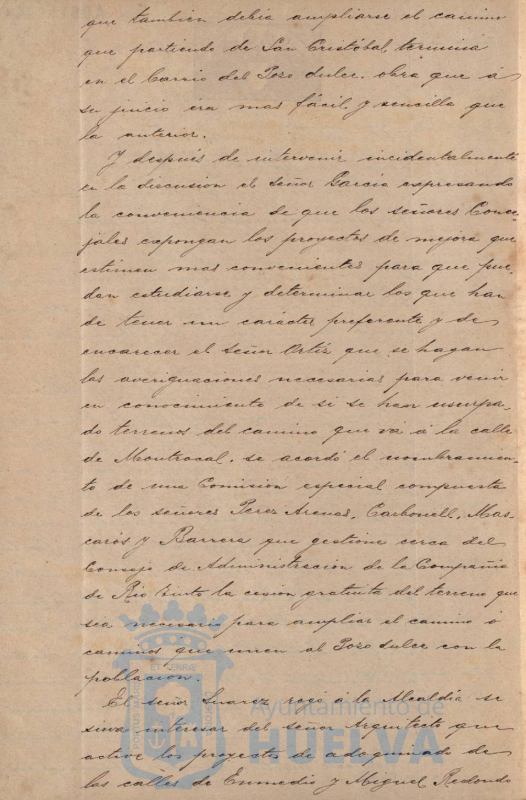 que también debia ampliarse el camino
que partiendo de San Cristóbal termina
en el barrio del Pozo dulce. obra que á
su juicio era mas fácil y sencilla que
la anterior.
Y después de intervenir incidentalmente
en la discusion el señor García expresando
la conveniencia de que los señores Conce-
jales expongan los proyectos de mejora que
estimen mas convenientes para que pue-
dan estudiarse y determinar los que han
de tener un carácter preferente y de
encarecer el Señor Ortiz que se hagan
las averiguaciones necesarias para venir
en conocimiento de si se han usurpa-
do terrenos del camino que vá á la calle
de Montrocal. se acordó el nombramien-
to de una Comisión especial compuesta
de los señores Perez Arenas, Carbonell, Mas-
carós y Barrera que gestione cerca del
Consejo de Administración de la Compañia
de Rio tinto la cesion gratuita del terreno que
sea necesario para ampliar el camino ó
caminos que unen al Pozo dulce con la
poblacion.
El señor Suarez rogó á la Alcaldía se
sirva interesar del señor Arquitecto que
active los proyectos de adoquinado de
las calles de Enmedio y Miguel Redondo
Ayuntamiento de
HUELVA